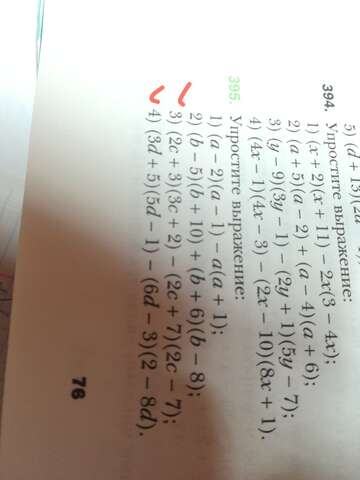 5) (d + 13)(2d
394. Упростите выражение:
1) (x + 2)(x + 11) − 2x(3 − 4x);
2) (a + 5)(a − 2) + (a − 4)(a + 6);
3) (y − 9)(3y − 1) − (2y + 1)(5y − 7);
4) (4x − 1)(4x − 3) − (2x − 10)(8x + 1).
395. Упростите выражение:
1) (a − 2)(a − 1) − a(a + 1);
2) (b − 5)(b + 10) + (b + 6)(b − 8);
3) (2c + 3)(3c + 2) − (2c + 7)(2c − 7);
4) (3d + 5)(5d − 1) − (6d − 3)(2 − 8d).
76